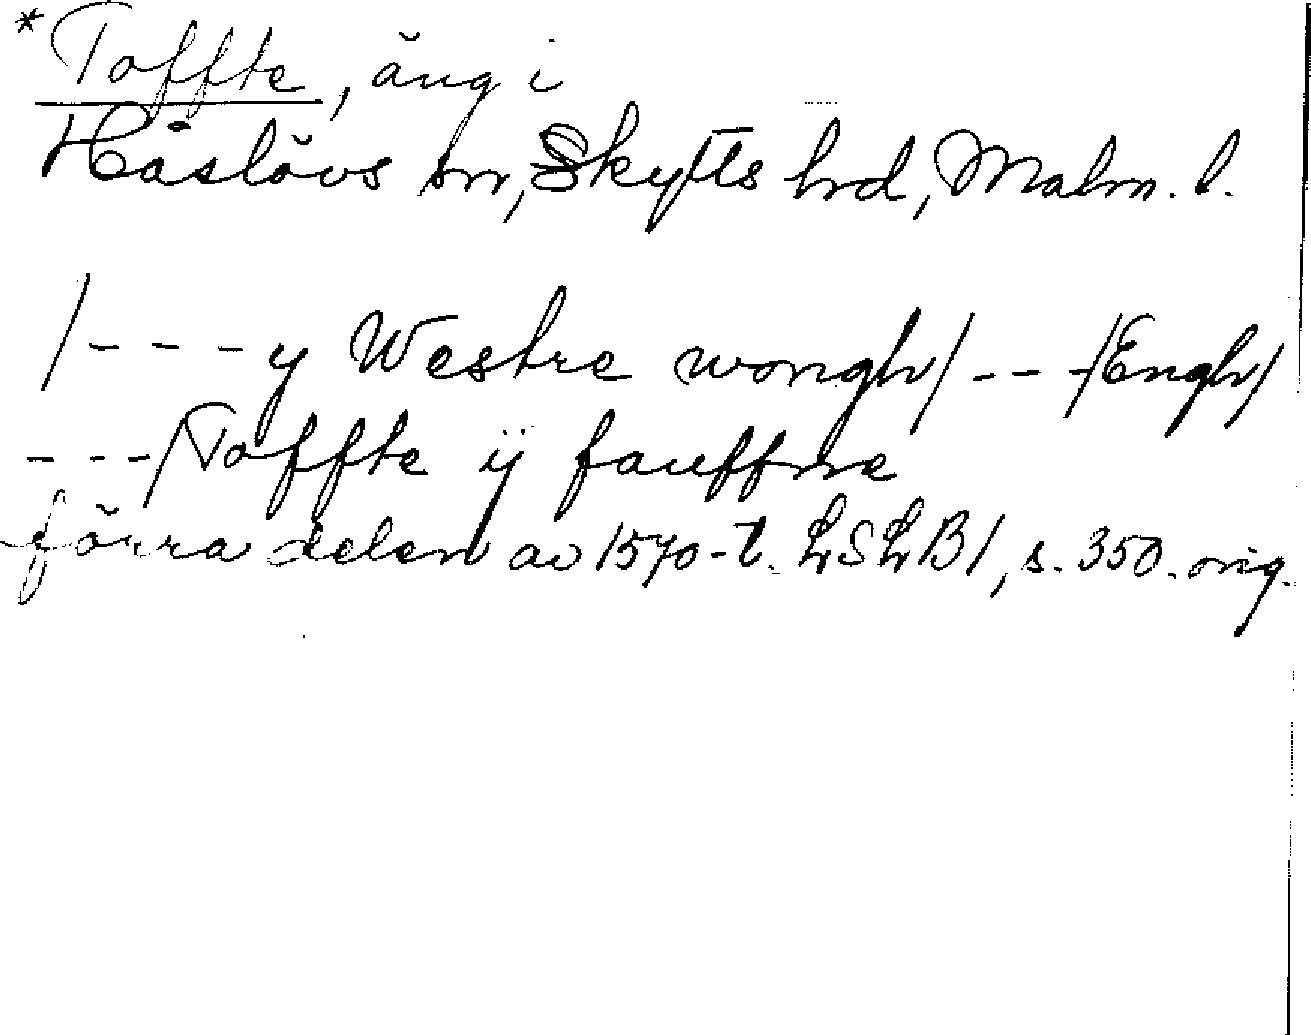 * Toffte, äng i
Håslövs sn, Skytts hrd, Malm. l.
/- - - y Westre wongh/ - - -/Engh/
- - -/Toffte ÿ fauffne
förra delen av 1570-t. LSLB1, s. 350. orig.